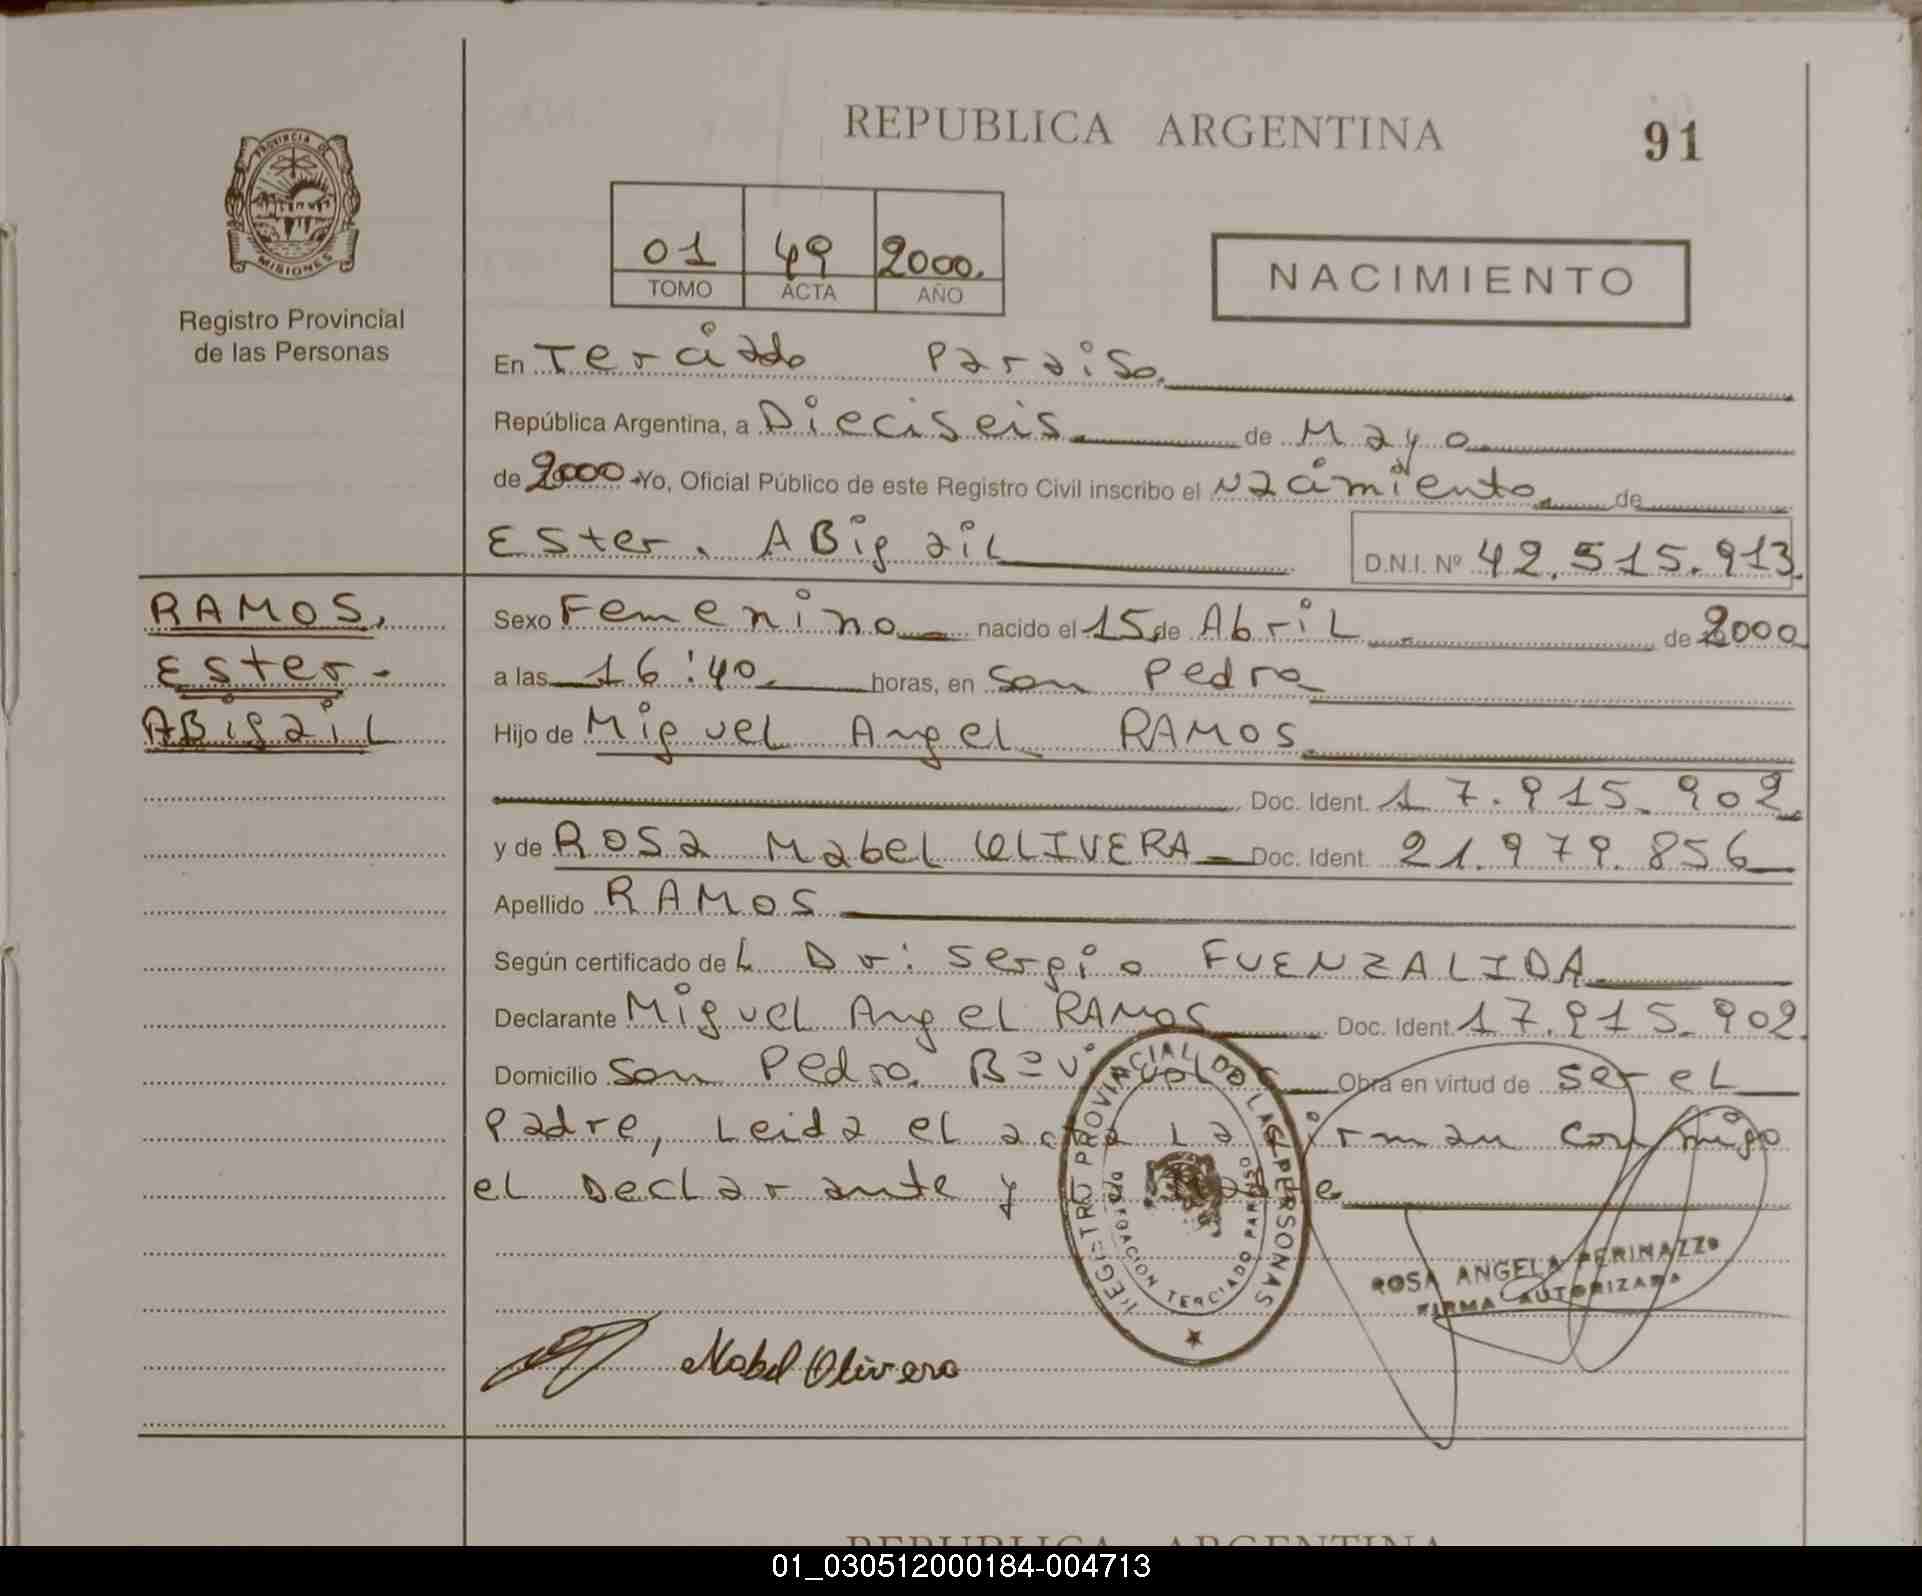 REPUBLICA ARGENTINA
91
PROVINCIA DE
MISIONES
Registro Provincial
de las Personas
01 49 2000.
TOMO ACTA AÑO
NACIMIENTO
En Terciado Paraiso.
República Argentina, a Dieciseis de Mayo
de 2000 Yo, Oficial Público de este Registro Civil inscribo el Nacimiento. de
Ester. ABigail D.N.I. Nº 42.515.913.
RAMOS,
Ester-
ABigail
Sexo Femenino nacido el 15 de Abril de 2000
a las 16:40. horas, en San Pedro
Hijo de Miguel Angel RAMOS.
Doc. Ident. 17.915.902.
y de Rosa Mabel OLIVERA Doc. Ident. 21.979.856
Apellido RAMOS
Según certificado del Dr: Sergio FUENZALIDA
Declarante Miguel Angel RAMOS Doc. Ident. 17.915.902.
Domicilio San Pedro. Bº Obra en virtud de ser el
Padre, Leida el acta La firman conmigo
el Declarante y
REGISTRO PROVINCIAL DE LAS PERSONAS
TERCIADO PARAISO
ROSA ANGELA PERINAZZO
FIRMA AUTORIZADA
Mabel Olivera
REPUBLICA ARGENTINA
01_030512000184-004713